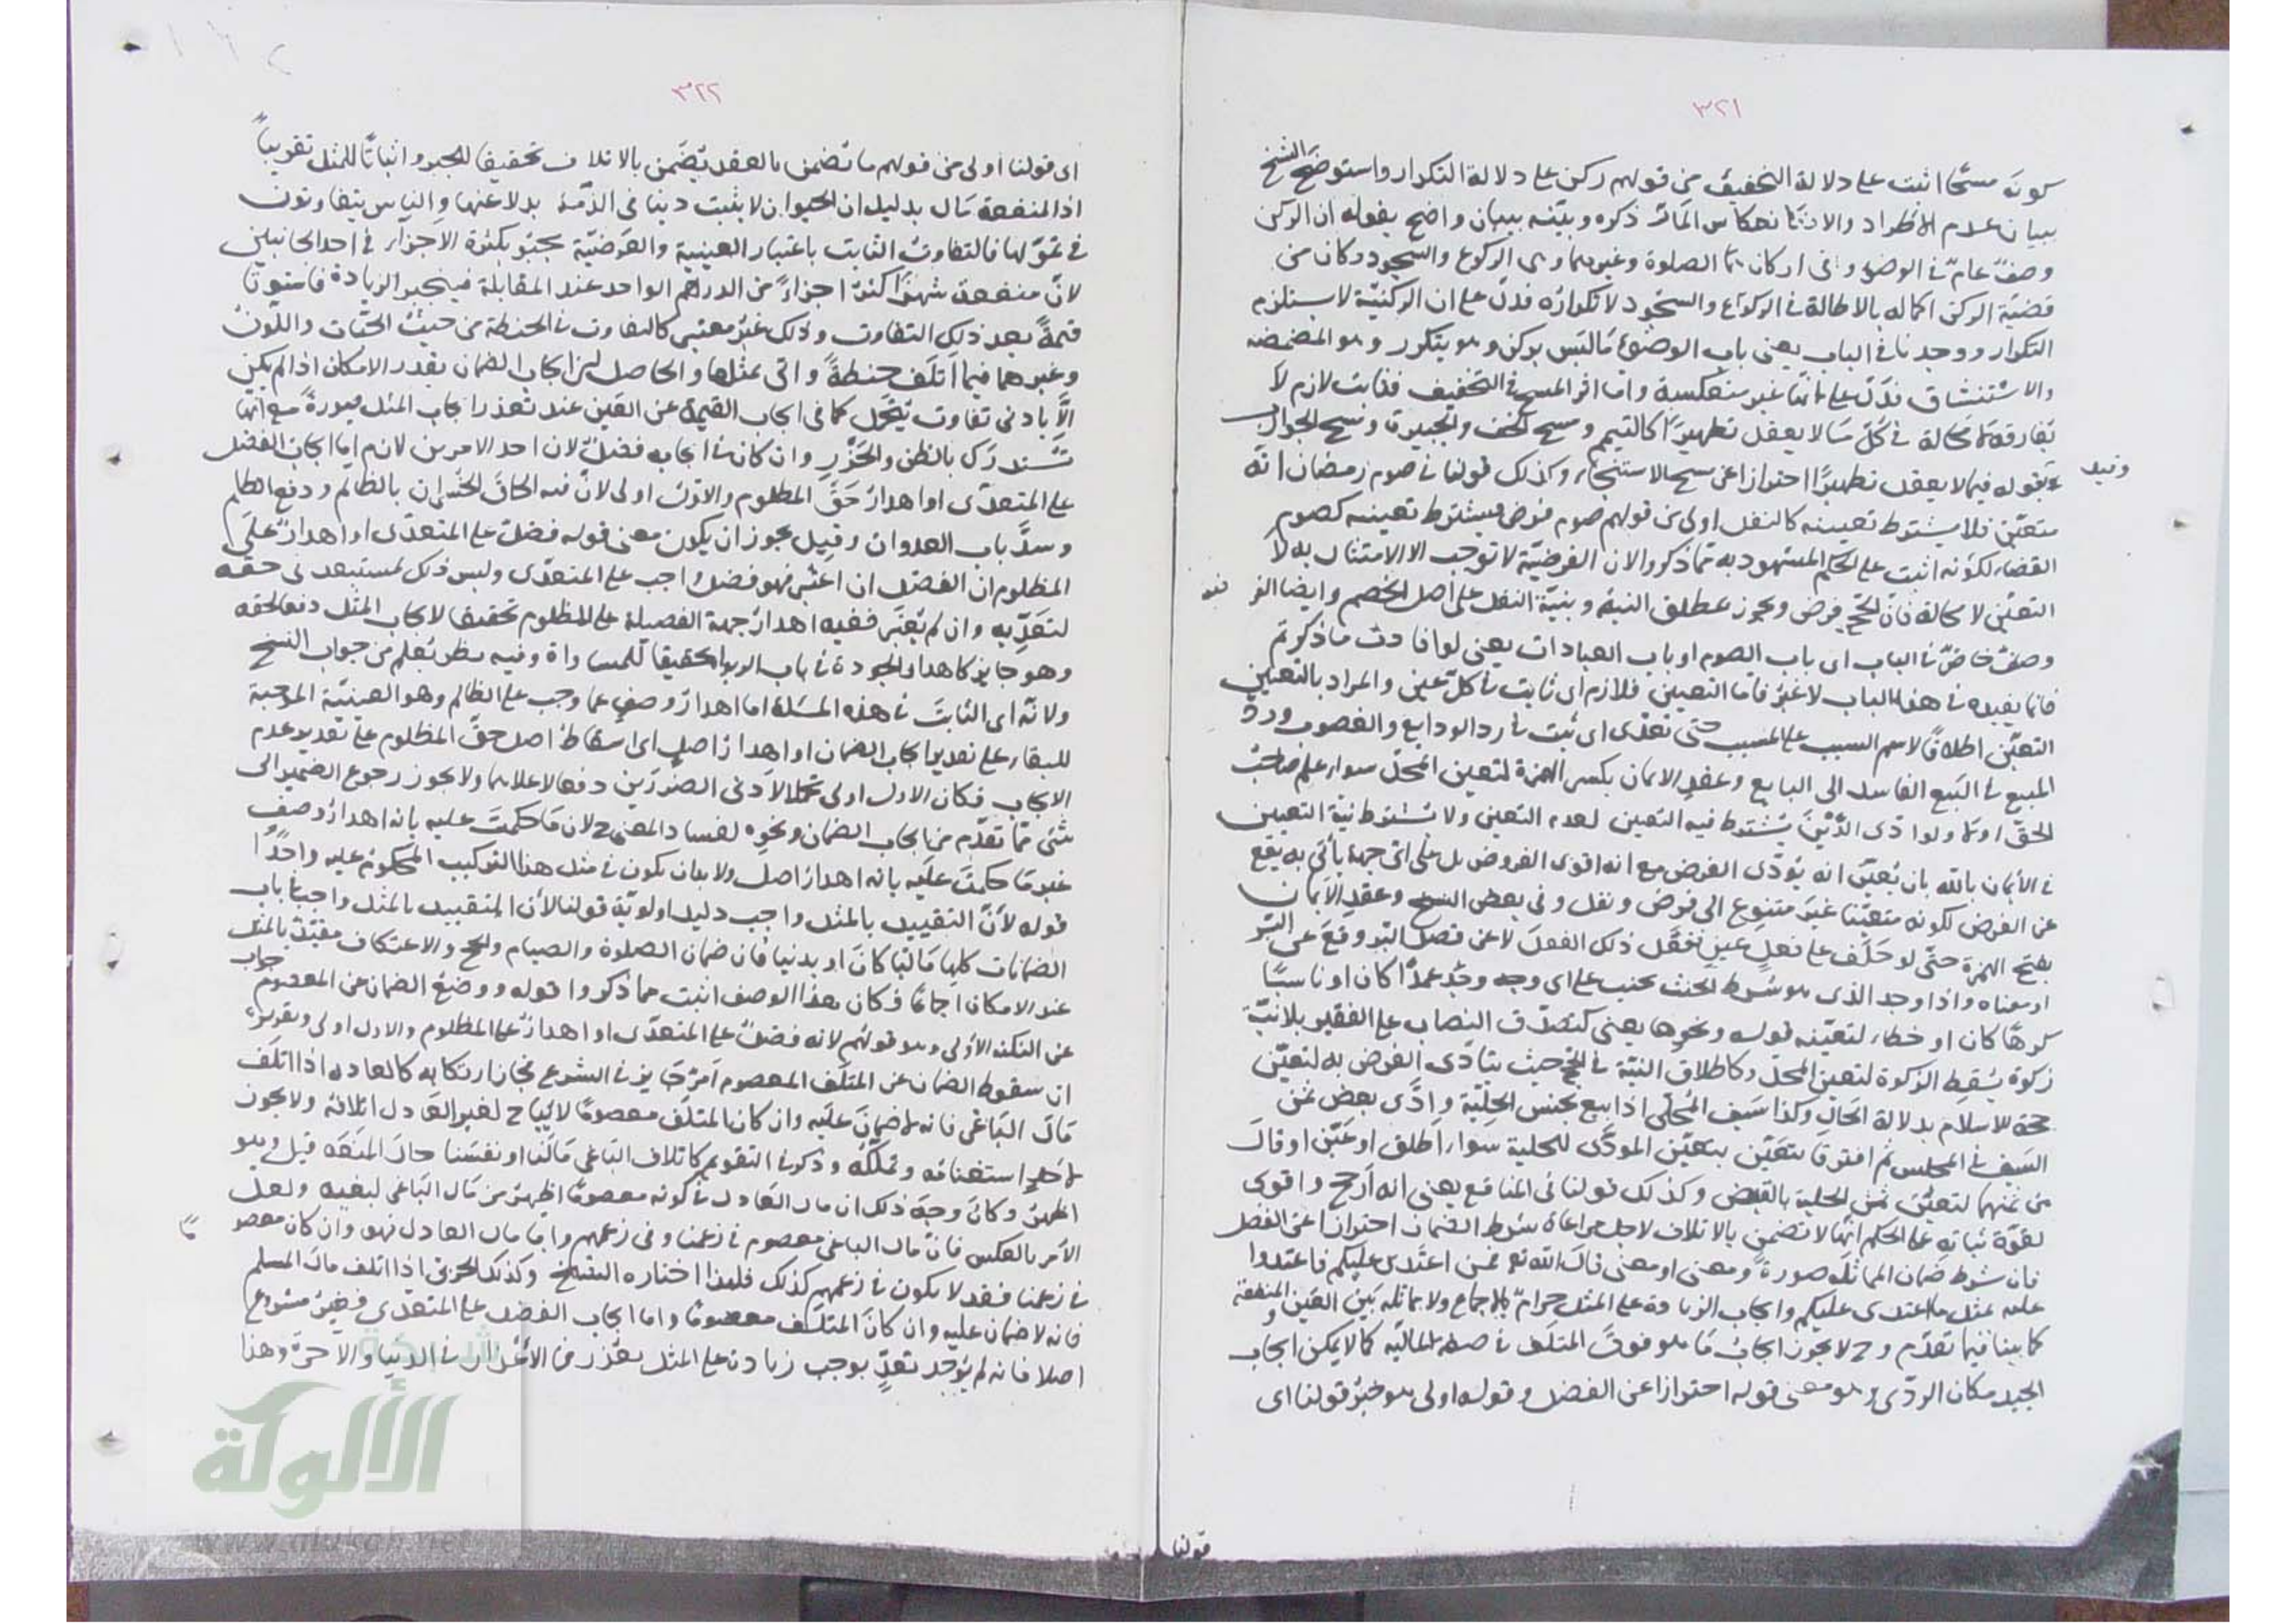 ٣٢١
كونه مسحًا اثبت على دلالة التخفيف من قولهم ركن على دلالة التكرار واستوضح الشيخ
بيان عدم الاطراد والانعكاس المارّ ذكره وبيّنه ببيان واضح بقوله ان الركن
وصفٌ عامّ في الوضوء وفي اركان الصلوة وغيرهما وهى الركوع والسجود وكان من
قضيّة الركن اكماله بالاطالة في الركوع والسجود لا تكراره فدلّ على ان الركنيّة لا يستلزم
التكرار ووجدنا في الباب يعنى باب الوضوء ما ليس بركن وهو يتكرر وهو المضمضه
والاستنشاق فدَلّ على انها غير منعكسة واما اثر المسح في التخفيف فثابت لازم لا
يفارقه لا محالة في كلّ ما لا يعقل تطهيرًا كالتيمم ومسح الخف والجبيرة ومسح الجوارب
وقيد بقوله فيما لا يعقل تطهيرًا احترازا عن مسح الاستنجاء وكذلك قولنا في صوم رمضان انه
متعيّن فلا يشترط تعيينه كالنفل اولى من قولهم صوم فرض فيشترط تعيينه كصوم
القضاء لكونه اثبت على الحكم المشهود به مما ذكروا لان الفرضيّة لا توجب الا الامتثال به لا
التعيّن لا محالة فان الحج فرض ويجوز بمطلق النية وبنيّة النفل على اصل الخصم وايضا الفرضيه
وصفٌ خاصّ في الباب اى باب الصوم او باب العبادات يعنى لو افادت ما ذكرتم
فانما يفيده في هذا الباب لا غير فاما التعيين فلازم اى ثابت في كلّ عين والمراد بالتعيين
التعيّن اطلاقًا لاسم السبب على المسبب حتى تعدى اى ثبت في رد الودايع والغصوب وردّ
المبيع في البيع الفاسد الى البايع وعقد الايمان بكسر الهمزة لتعين المحلّ سواء علم صاحبُ
الحق او لا ولو ادى الدَّيْنَ يشترط فيه التعين لعدم التعين ولا يشترط نيّة التعيين
في الايمان بالله بان يُعيّن انه يؤدّى الفرض مع انه اقوى الفروض بل على اى جهة يأتى به يقع
عن الفرض لكونه متعيّنا غيرَ متنوع الى فرض ونفل وفى بعض النسخ وعقد الأيمان
بفتح الهمزة حتّى لو حلف على فعل عين ففعل ذلك الفعلَ لا عن قصد البرّ وقع عن البرّ
او معناه واذا وجد الذى هو شرط الحنث يحنث على اى وجه وجد عمدًا كان او ناسيًا
كرهًا كان او خطاء لتعيّنه قوله ونحوها يعنى كتصدّق النصاب على الفقير بلا نيّة
زكوة يُسقط الزكوة لتعين المحلّ وكاطلاق النيّة في الحج حيث يتادّى الفرض به لتعيّن
حجة الاسلام بدلالة الحال وكذا سَيف المُحلّى اذا بيع بجنس الحلية وادَّى بعض ثمن
السَيف في المجلس ثم افترقا يتعيّن بتعيّن المودَّى للحلية سواء اطلق او عَيّن او قال
من ثمنهما لتعيّن ثمن الحلية بالقبض وكذلك قولنا في المنافع يعنى انه ارجح واقوى
لقوّة ثباته على الحكم انّها لا تضمن بالاتلاف لاجل مراعاة شرط الضمان احترازا عن الفضل
فان شرط ضمان المماثلة صورةً ومعنى او معنى قال الله تع فمن اعتدى عليكم فاعتدوا
عليه بمثل ما اعتدى عليكم وايجاب الزيادة على المثل حرامٌ بالاجماع ولا مماثلة بين العَين والمنفعة
كما بينا فيما تقدّم وح لا يجوز ايجابُ ما هو فوق المتلف في صفة المالية كما لا يمكن ايجاب
الجيد مكان الردّى وهو معنى قوله احترازا عن الفضل وقوله اولى هو خبرُ قولنا اى
قولنا
٣٢٢
اى قولنا اولى من قولهم ما تضمن بالعقد يضمن بالاتلاف تحقيقا للجبر واثباتًا للمثل تقريباً
اذ المنفعة مال بدليل ان الحيوان لا يثبت دينا في الذمّة بدلا عنها والناس يتفاوتون
في تموّلها فالتفاوتُ الثابت باعتبار العينية والعَرَضيّة يجبَر بكثرة الاجزاء في احد الجانبين
لانّ منفعة شهرٍ اكثرُ اجزاءً من الدرهم الواحد عند المقابلة فينجبر الزيادة فاستويا
قيمةً بعد ذلك التفاوت وذلك غيرُ معتبر كالتفاوت في الحنطة من حيثُ الحبّات واللّون
وغيرهما فيما اتلَف حنطةً واتى بمثلها والحاصل ان ايجاب الضمان بقدر الامكان اذا لم يكن
الّا بادنى تفاوت يُتحمّل كما في ايجاب القيمة عن العَين عند تعذر ايجاب المثل صورةً مع انها
تُستدرك بالظن والحَزْرِ وان كان في ايجابه فضلٌ لان احد الامرين لازم اما ايجاب الفضل
على المتعدّى او اهدارُ حَقّ المظلوم والاوّل اولى لانّ فيه الحاقَ الخُسران بالظالم ودفع الظلم
وسدَّ باب العدوان وقيل يجوز ان يكون معنى قوله فضلٌ على المتعدّى او اهدارٌ على
المظلوم ان الفضل ان اعتبر فهو فضل واجب على المتعدّى وليس ذلك لمستبعد في حقه
لتعدّيه وان لم يُعتبر ففيه اهدارُ جهة الفضيلة على المظلوم تحقيقا لايجاب المثل دفعا لحقه
وهو جايز كاهدار الجودة في باب الربوا تحقيقا للمساواة وفيه نظر يُعلم من جواب الشيخ
ولانّه اى الثابتَ في هذه المسئلة اما اهدارُ وصفٍ عما وجب على الظالم وهو العينيّة الموجبة
للبقاء على تقدير ايجاب الضمان او اهدارُ اصلٍ اى اسقاطُ اصل حقّ المظلوم على تقدير عدم
الايجاب فكان الاول اولى تحملا لادنى الضررَين دفعا لاعلاهما ولا يجوز رجوع الضمير الى
شئ ممّا تقدّم من ايجاب الضمان ونحوه لفساد المعنى ح لان ما حكمتَ عليه بانه اهدارُ وصف
غير ما حكمتَ عليه بانه اهدارُ اصل ولا بد ان يكون في مثل هذا التركيب المحكومُ عليه واحدًا
قوله لأنّ التقييد بالمثل واجب دليل اولويّة قولنا لأن التقييد بالمثل واجب في باب
الضمانات كلها ماليّا كان او بدنيا فان ضمان الصلوة والصيام والحج والاعتكاف مقيّد بالمثل
عند الامكان اجماعًا فكان هذا الوصف اثبت مما ذكروا قوله ووضعُ الضمان عن المعصوم جواب
عن النكتة الاولى وهو قولهم لانه فضلٌ على المتعدّى او اهدارٌ على المظلوم والاول اولى وتقريره
ان سقوط الضمان عن المتلَف المعصوم امرٌ جايز في الشرع فجاز ارتكابه كالعادل اذا اتلَف
مال الباغى فانه لا ضمانَ عليه وان كان المتلَف معصومًا لا يُباح لغير العادل اتلافه ولا يجوز
لاحد استغنامه وتملّكه وذكر في التقويم كاتلاف الباغى مالَنا او نفسَنا حال المنعَة قيل وهو
اظهرُ وكان وجهَ ذلك ان مال العادل في كونه معصومًا اظهرُ من مال الباغى لبغيه ولعل
الأمر بالعكس فانّ مال الباغى معصوم في زعمنا وفى زعمهم واما مال العادل فهو وان كان معصوما
في زعمنا فقد لا يكون في زعمهم كذلك فلهذا اختاره الشيخ وكذلك الحربى اذا اتلف مال المسلم
فانه لا ضمان عليه وان كان المتلَف معصومًا واما ايجاب الفضل على المتعدّى فغيرُ مشروع
اصلا فانه لم يوجد تعدٍّ يوجب زيادة على المثل بعُذر من الاعذار في الدنيا والآخرة وهذا
شبكة
الألوكة
www.alukah.net